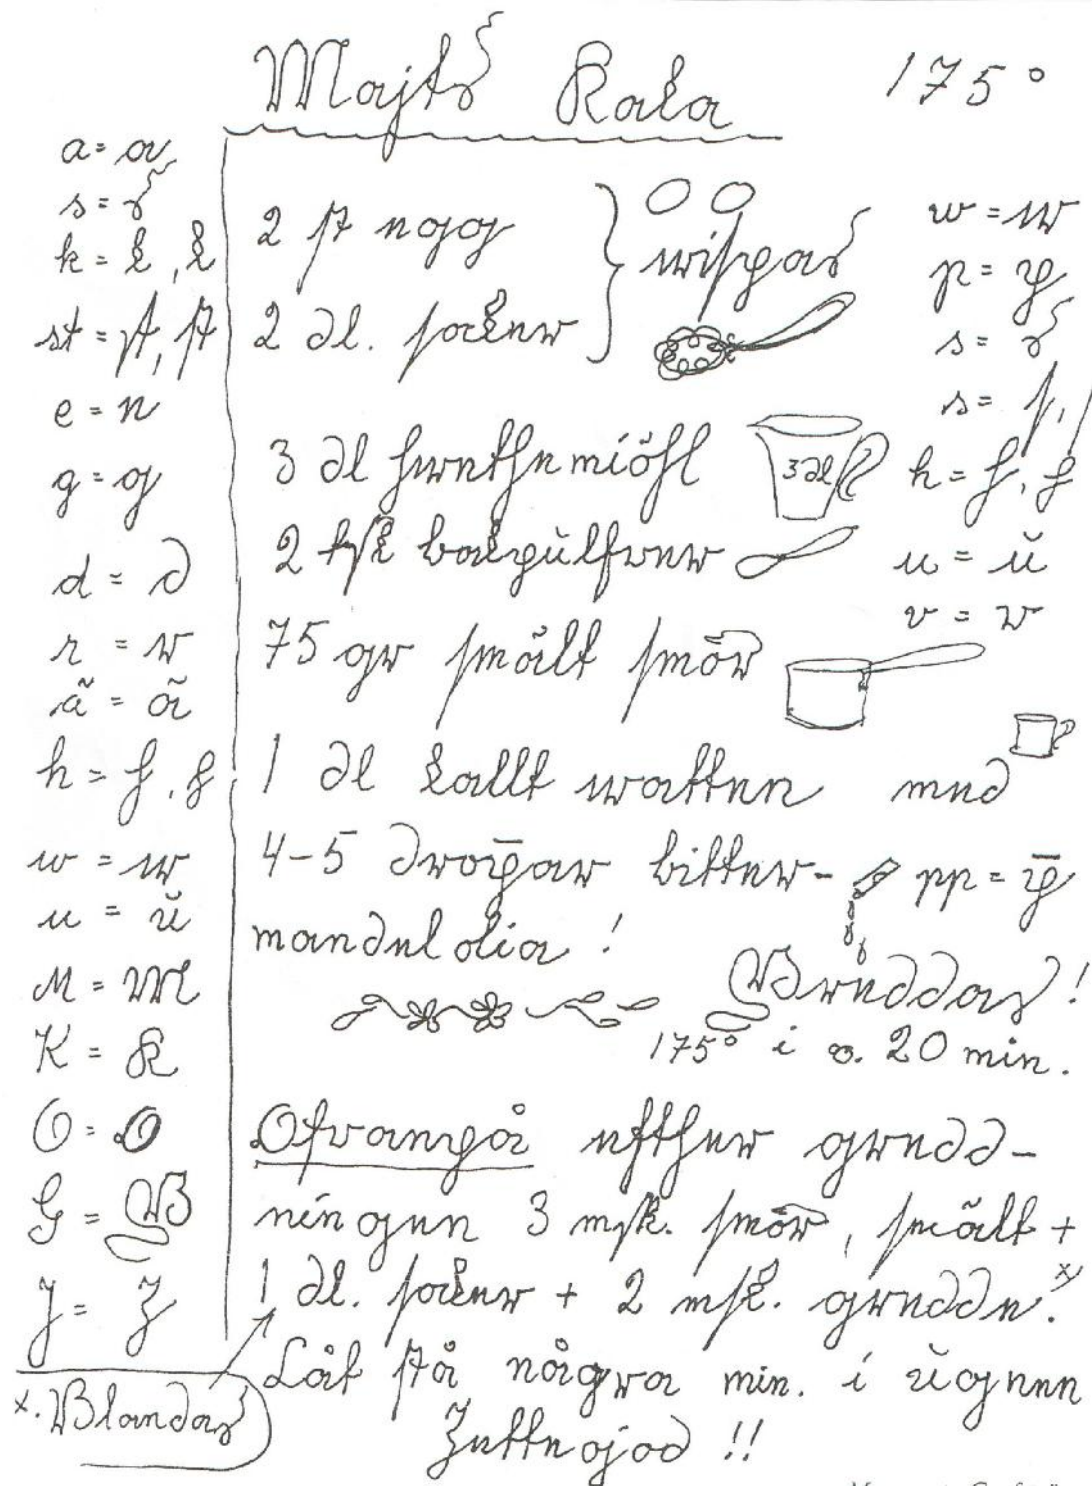 Majts Kaka 175°
a = a
s = s
k = k, k
st = st, st
e = e
g = g
d = d
r = r
ä = ä
h = h, h
w = w
u = u
M = M
K = K
O = O
G = G
J = J
x. Blandas
2 st egg
wispas
2 dl. socker
3 dl hwethemiöhl
3 dl
2 tsk bakpulfwer
75 gr smält smör
1 dl kallt watten med
4-5 dropar bitter-
mandelolia !
Gräddas!
175° i ca. 20 min.
Ofvanpå efther gredd-
ningen 3 msk. smör, smält +
1 dl. socker + 2 msk. gredde. x
Låt stå några min. i ugnen
Jettegod !!
w = w
p = p
s = s
s = s, s
h = h, h
u = u
v = v
pp = p̄